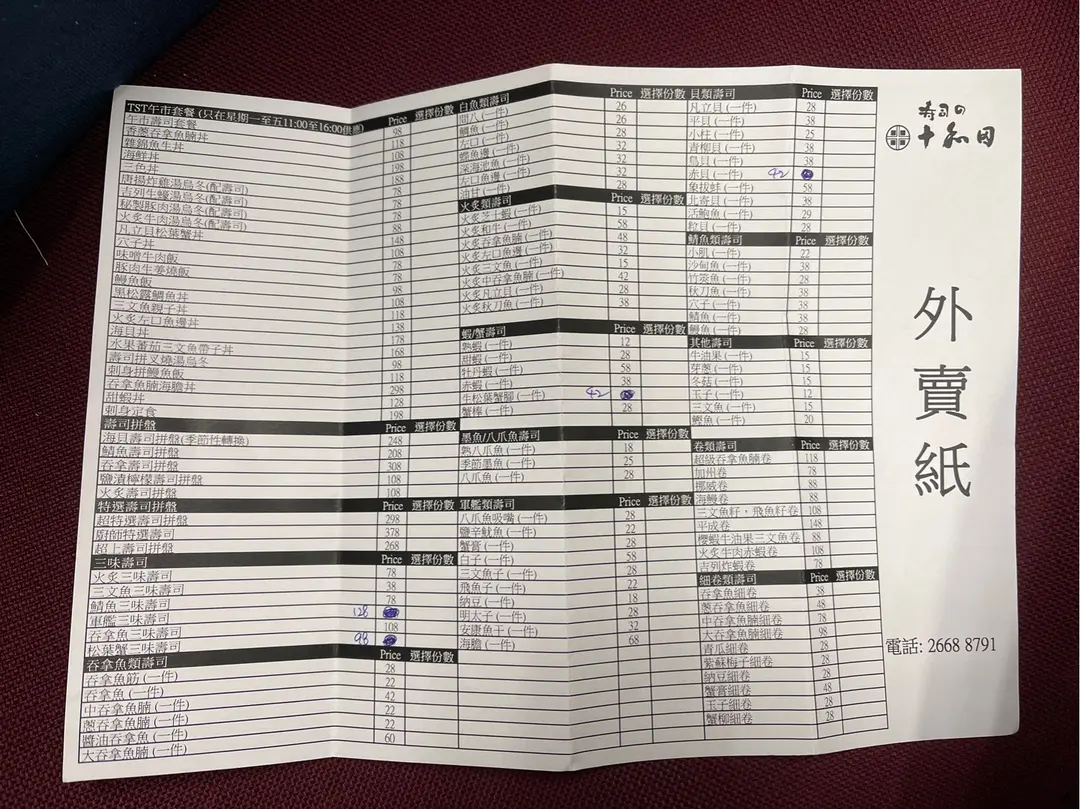 TST午市套餐 (只在星期一至五11:00至16:00供應) Price 選擇份數
午市壽司套餐 98
香蔥吞拿魚腩丼 118
雜錦魚生丼 108
海鮮丼 198
三色丼 188
唐揚炸雞湯烏冬(配壽司) 78
吉列生蠔湯烏冬(配壽司) 78
秘製豚肉湯烏冬(配壽司) 78
火炙牛肉湯烏冬(配壽司) 88
凡立貝松葉蟹丼 148
穴子丼 108
味噌牛肉飯 78
豚肉生姜燒飯 78
鰻魚飯 98
黑松露鯛魚丼 108
三文魚親子丼 118
火炙左口魚邊丼 138
海貝丼 178
水果蕃茄三文魚帶子丼 168
壽司拼叉燒湯烏冬 98
刺身拼鰻魚飯 118
吞拿魚腩海膽丼 298
甜蝦丼 128
刺身定食 198
壽司拼盤 Price 選擇份數
海貝壽司拼盤(季節性轉換) 248
鯖魚壽司拼盤 208
吞拿壽司拼盤 308
鹽漬檸檬壽司拼盤 108
火炙壽司拼盤 108
特選壽司拼盤 Price 選擇份數
超特選壽司拼盤 298
廚師特選壽司 378
超上壽司拼盤 268
三味壽司 Price 選擇份數
火炙三味壽司 78
三文魚三味壽司 38
鯖魚三味壽司 78
軍艦三味壽司 128
吞拿魚三味壽司 108
松葉蟹三味壽司 98
吞拿魚類壽司 Price 選擇份數
吞拿魚筋 (一件) 28
吞拿魚 (一件) 22
中吞拿魚腩 (一件) 42
蔥吞拿魚腩 (一件) 22
醬油吞拿魚 (一件) 22
大吞拿魚腩 (一件) 60
白魚類壽司 Price 選擇份數
間八 (一件) 26
鯛魚 (一件) 26
左口 (一件) 28
鰈魚邊 (一件) 32
深海池魚 (一件) 32
左口魚邊 (一件) 32
油甘 (一件) 28
火炙類壽司 Price 選擇份數
火炙芝士蝦 (一件) 15
火炙和牛 (一件) 58
火炙吞拿魚腩 (一件) 48
火炙左口魚邊 (一件) 32
火炙三文魚 (一件) 15
火炙中吞拿魚腩 (一件) 42
火炙凡立貝 (一件) 28
火炙秋刀魚 (一件) 38
蝦/蟹壽司 Price 選擇份數
熟蝦 (一件) 12
甜蝦 (一件) 28
牡丹蝦 (一件) 58
赤蝦 (一件) 38
生松葉蟹腳 (一件) 42
蟹棒 (一件) 28
墨魚/八爪魚壽司 Price 選擇份數
熟八爪魚 (一件) 18
季節墨魚 (一件) 25
八爪魚 (一件) 28
軍艦類壽司 Price 選擇份數
八爪魚吸嘴 (一件) 28
鹽辛魷魚 (一件) 22
蟹膏 (一件) 28
白子 (一件) 58
三文魚子 (一件) 28
飛魚子 (一件) 22
納豆 (一件) 18
明太子 (一件) 28
安康魚干 (一件) 32
海膽 (一件) 68
貝類壽司 Price 選擇份數
凡立貝 (一件) 28
平貝 (一件) 38
小柱 (一件) 25
青柳貝 (一件) 38
鳥貝 (一件) 38
赤貝 (一件) 42
象拔蚌 (一件) 58
北寄貝 (一件) 38
活鮑魚 (一件) 29
粒貝 (一件) 28
鯖魚類壽司 Price 選擇份數
小肌 (一件) 22
沙甸魚 (一件) 38
竹筴魚 (一件) 28
秋刀魚 (一件) 28
穴子 (一件) 38
鯖魚 (一件) 38
鰻魚 (一件) 28
其他壽司 Price 選擇份數
牛油果 (一件) 15
芽蔥 (一件) 15
冬菇 (一件) 15
玉子 (一件) 12
三文魚 (一件) 15
鰹魚 (一件) 20
卷類壽司 Price 選擇份數
超級吞拿魚腩卷 118
加州卷 78
挪威卷 88
海鰻卷 88
三文魚籽，飛魚籽卷 108
平成卷 148
櫻蝦牛油果三文魚卷 88
火炙牛肉赤蝦卷 108
吉列炸蝦卷 78
細卷類壽司 Price 選擇份數
吞拿魚細卷 38
蔥吞拿魚細卷 48
中吞拿魚腩細卷 78
大吞拿魚腩細卷 98
青瓜細卷 28
紫蘇梅子細卷 28
納豆細卷 28
蟹膏細卷 48
玉子細卷 28
蟹柳細卷 28
寿司の
十和田
外賣紙
電話: 2668 8791